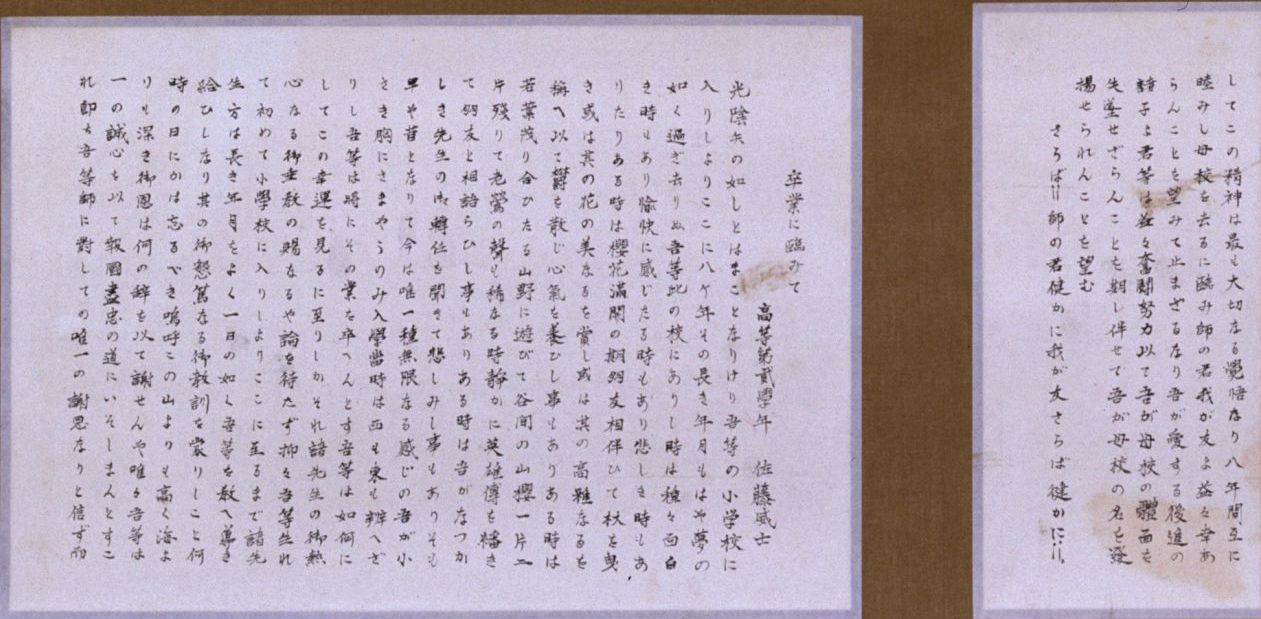 卒業に臨みて
高等第貳學年 佐藤威士
光陰矢の如しとはまことなりけり吾等の小学校に
入りしよりここに八ケ年その長き年月もはや夢の
如く過ぎ去りぬ吾等此の校にありし時は種々面白
き時もあり愉快に感じたる時もあり悲しき時もあ
りたりある時は櫻花滿開の朝朋友相伴ひて杖を曳
き或は其の花の美なるを賞し或は其の高雅なるを
稱へ以て欝を散じ心氣を養ひし事もありある時は
若葉茂り合ひたる山野に遊びて谷間の山櫻一片二
片殘りて老鶯の聲も稀なる時靜かに英雄傳を繙き
て朋友と相語らひし事もありある時は吾がなつか
しき先生の御轉任を聞きて悲しみし事もありそも
早や昔となりて今は唯一種無限なる感じの吾が小
さき胸にさまやうのみ入學當時は西も東も辨へざ
りし吾等は將にその業を卒へんとす吾等は如何に
してこの幸運を見るに至りしかそれ諸先生の御熱
心なる御垂教の賜なるや論を待たず抑々吾等生れ
て初めて小學校に入りしよりここに至るまで諸先
生方は長き年月をよく一日の如く吾等を教へ導き
給ひしなり其の御懇篤なる御教訓を蒙りしこと何
時の日にかは忘るべき嗚呼この山よりも高く海よ
りも深き御恩は何の辞を以て謝せんや唯々吾等は
一の誠心を以て報國盡忠の道にいそしまんとすこ
れ即ち吾等師に對しての唯一の謝恩なりと信ず而
してこの精神は最も大切なる覺悟なり八年間互に
睦みし母校を去るに臨み師の君我が友よ益々幸あ
らんことを望みて止まざるなり吾が愛する後進の
諸子よ君等は益々奮鬪努力以て吾が母校の體面を
失墜せざらんことを期し併せて吾が母校の名を發
揚せられんことを望む
さらば!!師の君健かに我が友さらば健かに!!